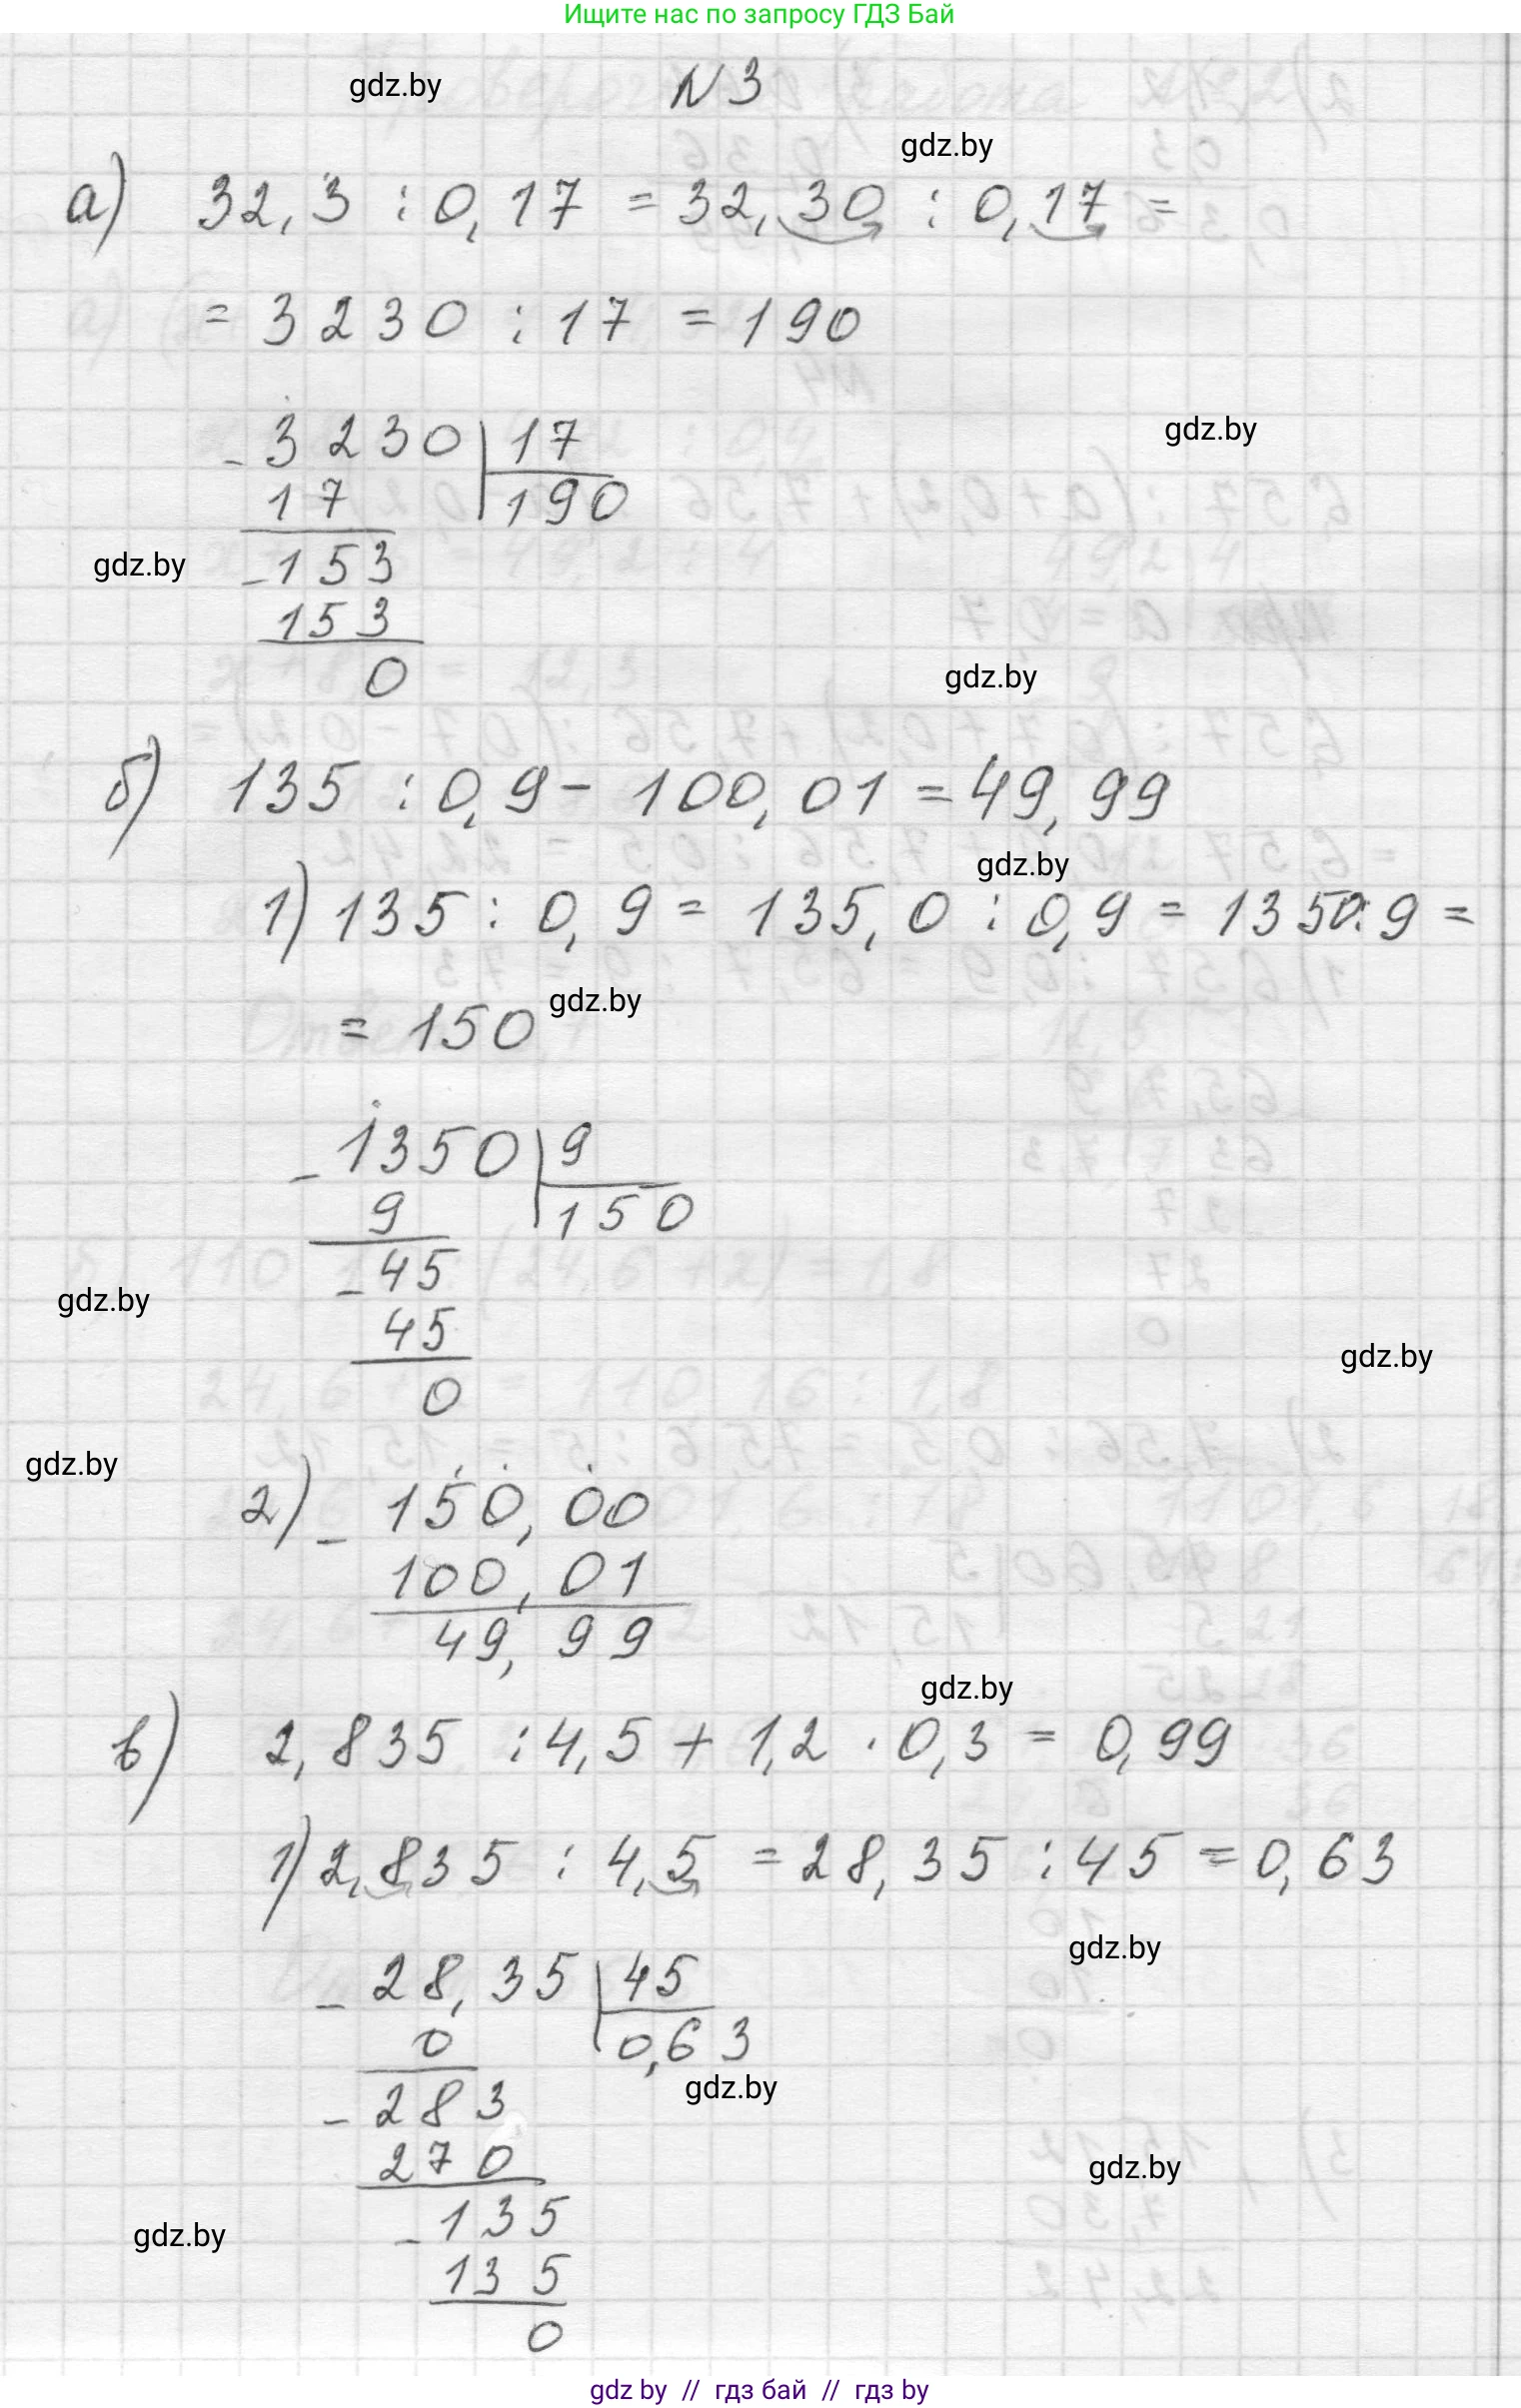 Ищите нас по запросу ГДЗ Бай
gdz.by
N 3
gdz.by
а) 32,3 : 0,17 = 32,30 : 0,17 =
= 3230 : 17 = 190
- 3230 | 17
gdz.by
17 | 190
gdz.by
- 153
153
0
gdz.by
б) 135 : 0,9 - 100,01 = 49,99
gdz.by
1) 135 : 0,9 = 135,0 : 0,9 = 1350 : 9 =
= 150
gdz.by
- 1350 | 9
9 | 150
- 45
gdz.by
45
gdz.by
0
gdz.by
2) - 150,00
100,01
49,99
gdz.by
в) 2,835 : 4,5 + 1,2 · 0,3 = 0,99
1) 2,835 : 4,5 = 28,35 : 45 = 0,63
gdz.by
- 28,35 | 45
0 | 0,63
gdz.by
- 283
270
gdz.by
- 135
gdz.by
135
0
gdz by // гдз бай // гдз by